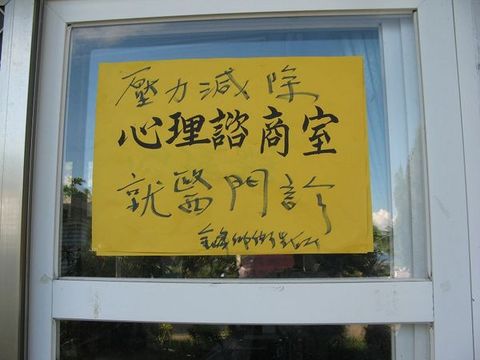 壓力減除
心理諮商室
就醫門診